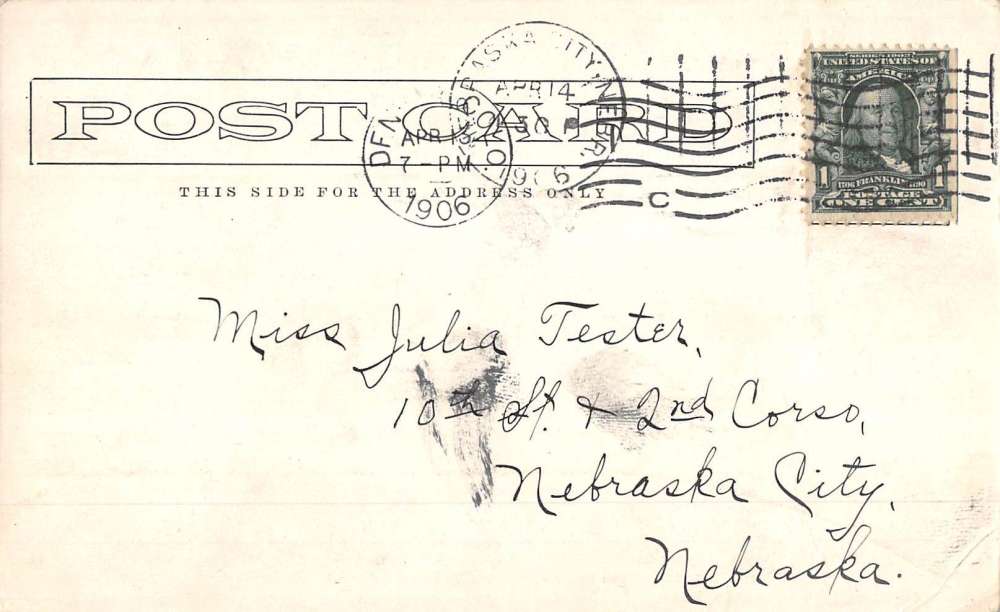 NEBRASKA CITY, NEBR.
APR 14
30 P
1906
POST CARD
DEN
APR 13
7-PM
1906
THIS SIDE FOR THE ADDRESS ONLY
C
SERIES 1902
UNITED STATES OF
AMERICA
1 1706 FRANKLIN 1790 1
POSTAGE
ONE CENT
Miss Julia Tester,
10th St. & 2nd Corso,
Nebraska City,
Nebraska.